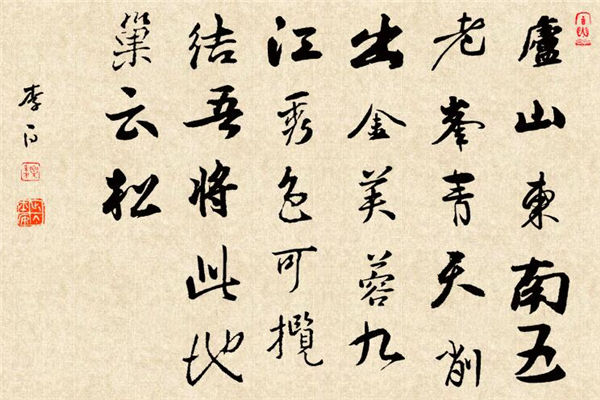 廬山東南五
老峯青天削
出金芙蓉九
江秀色可攬
结吾将此地
巢云松
李白